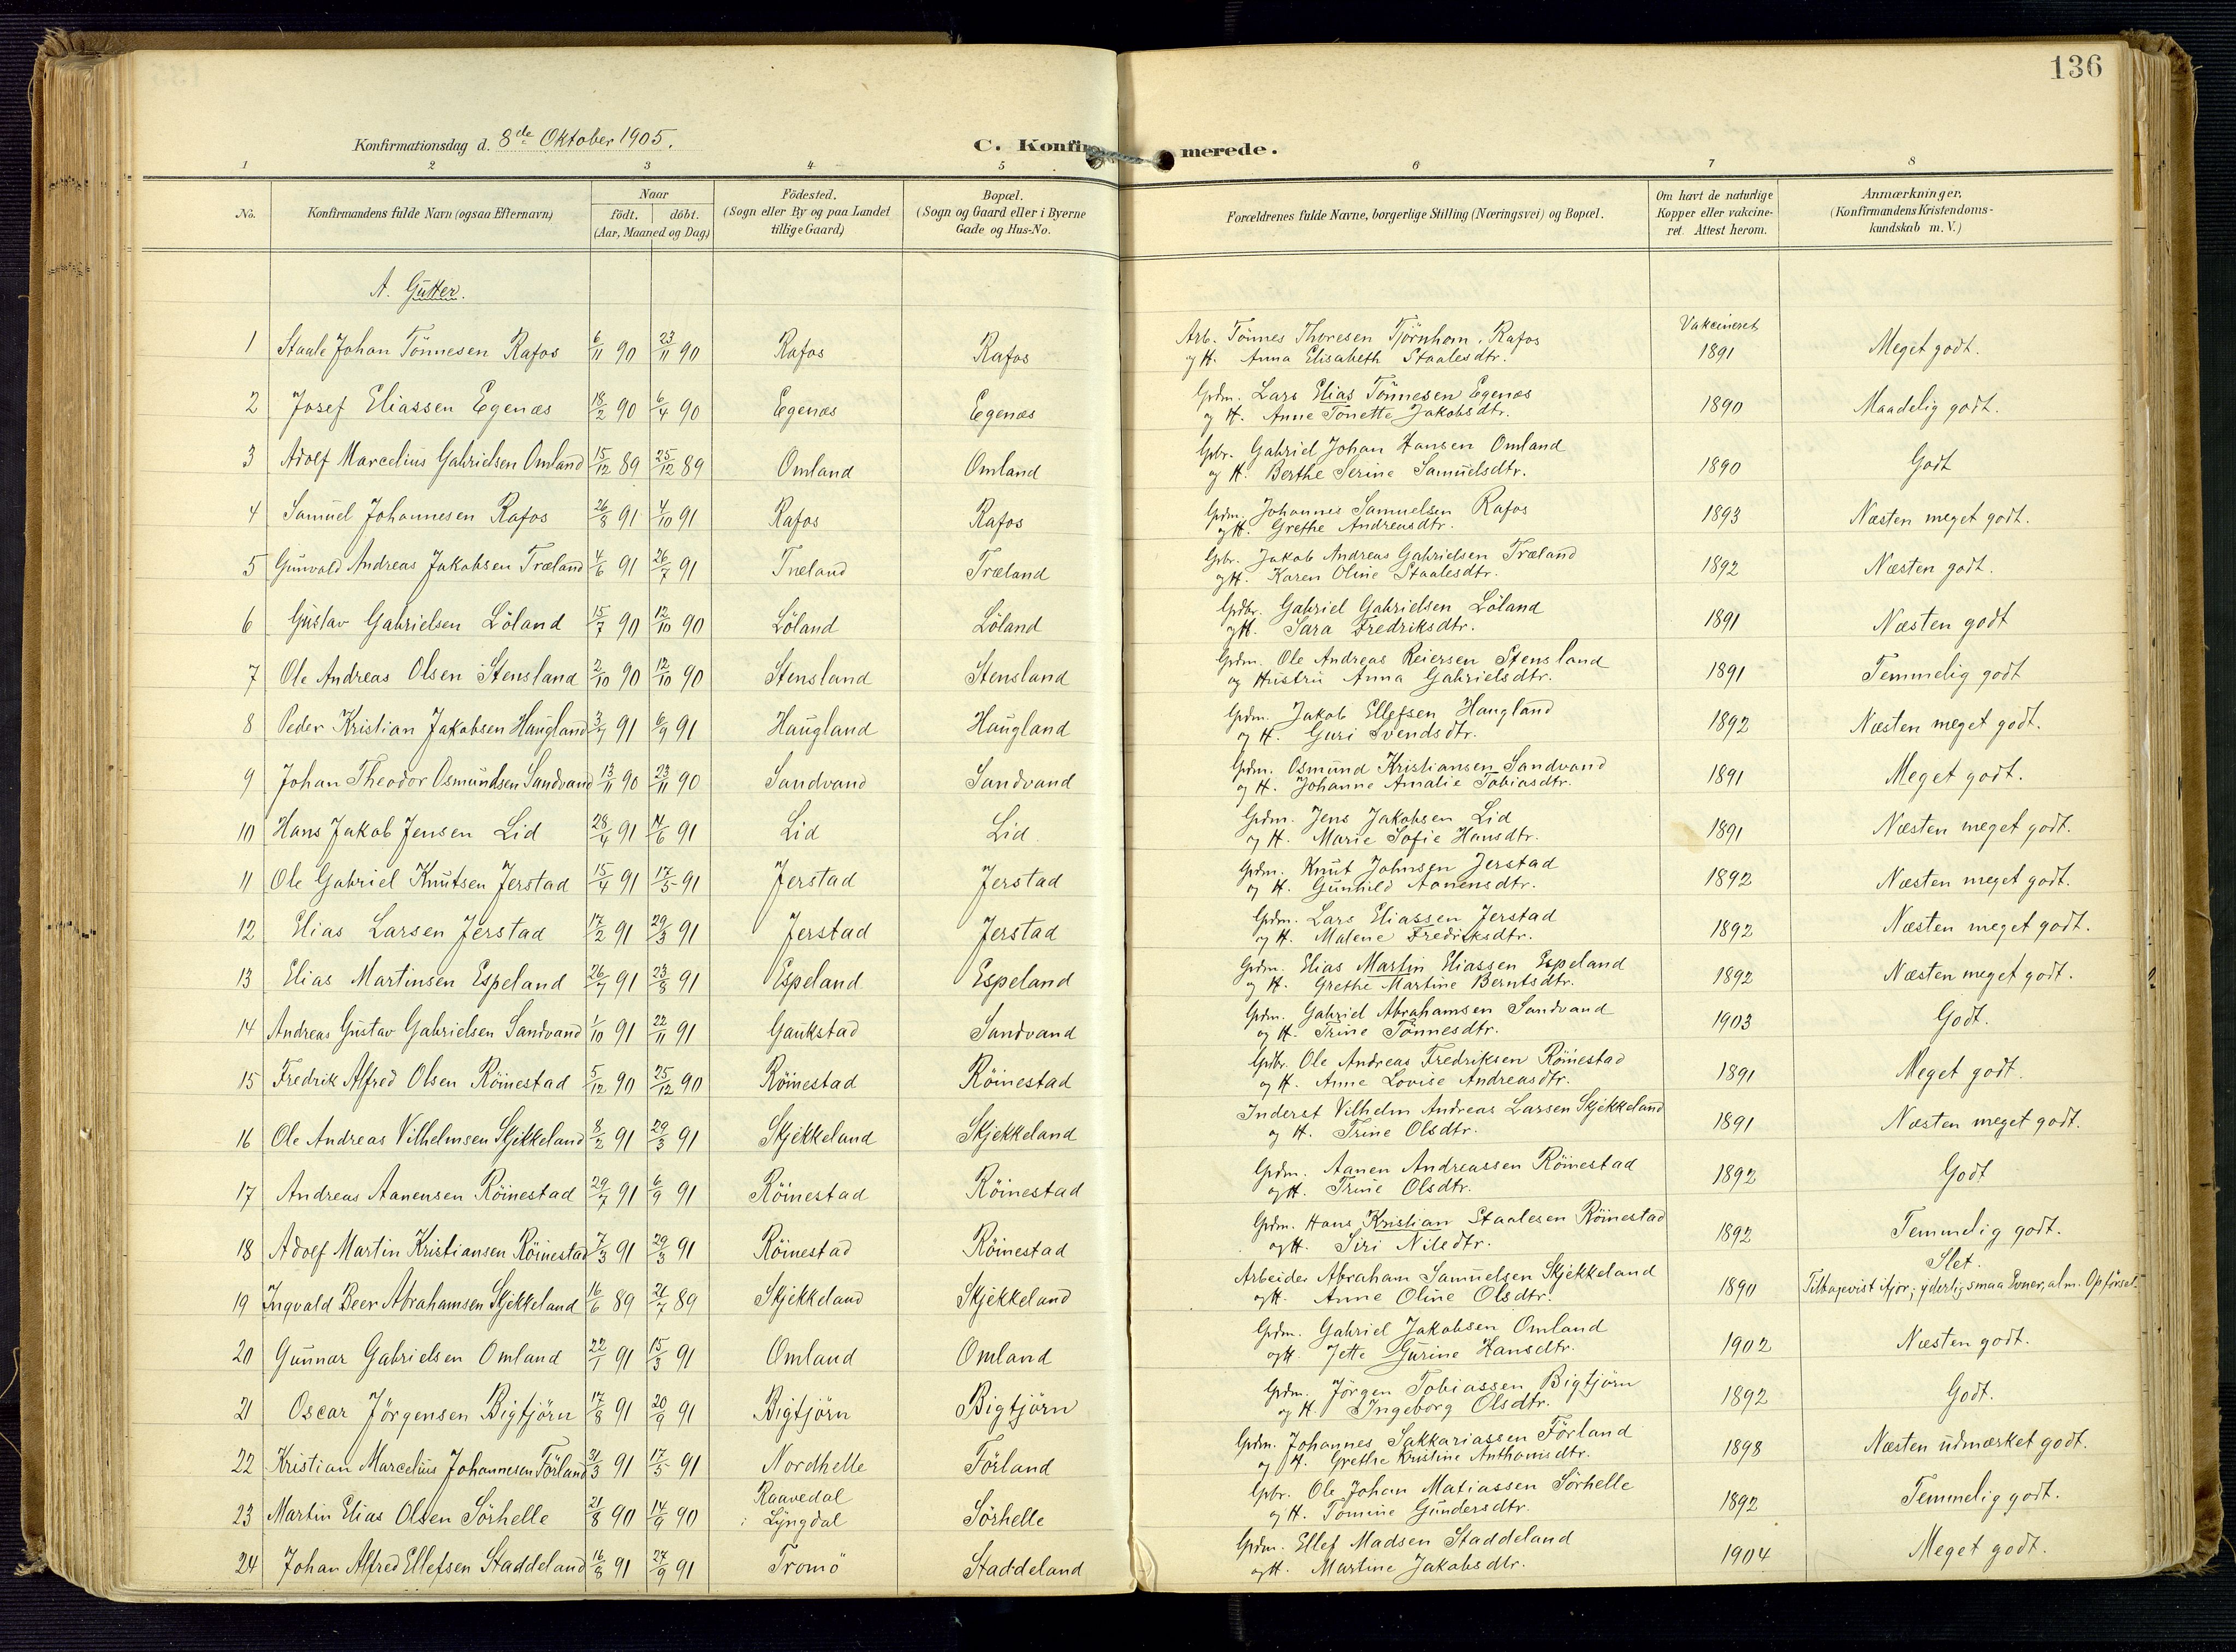 136
Konfirmationsdag d. 8de Oktober 1905.
C. Konfirmerede.
1 2 3 4 5 6 7 8
No. Konfirmandens fulde Navn (ogsaa Efternavn) Naar födt. döbt. (Aar, Maaned og Dag) Födested. (Sogn eller By og paa Landet tillige Gaard) Bopæl. (Sogn og Gaard eller i Byerne Gade og Hus-No. Forældrenes fulde Navne, borgerlige Stilling (Næringsvei) og Bopæl. Om havt de naturlige Kopper eller vakcineret. Attest herom. Anmærkninger. (Konfirmandens Kristendomskundskab m. V.)
A. Gutter.
1 Staale Johan Tönnesen Rafos 6/11 90 23/11 90 Rafos Rafos Arb. Tönnes Thoresen Tjörnhom, Rafos Vakcineret 1891 Meget godt.
og H. Anna Elisabeth Staalesdtr.
2 Josef Eliassen Egenæs 18/2 90 6/4 90 Egenæs Egenæs Gdm. Lars Elias Tönnesen Egenæs 1890 Maadelig godt.
og H. Anne Tonette Jakobsdtr.
3 Adolf Marcelius Gabrielsen Omland 15/12 89 25/12 89 Omland Omland Gbr. Gabriel Johan Hansen Omland 1890 Godt
og H. Berthe Serine Samuelsdtr.
4 Samuel Johannesen Rafos 26/8 91 4/10 91 Rafos Rafos Gdm. Johannes Samuelsen Rafos 1893 Næsten meget godt.
og H. Grethe Andreasdtr.
5 Gunvald Andreas Jakobsen Træland 4/6 91 26/7 91 Træland Træland Gbr. Jakob Andreas Gabrielsen Træland 1892 Næsten godt.
og H. Karen Oline Staalesdtr.
6 Gustav Gabrielsen Löland 15/7 90 12/10 90 Löland Löland Gdbr. Gabriel Gabrielsen Löland 1891 Næsten godt
og H. Sara Fredriksdtr.
7 Ole Andreas Olsen Stensland 2/10 90 12/10 90 Stensland Stensland Gdm. Ole Andreas Reiersen Stensland 1891 Temmelig godt
og Hustru Anna Gabrielsdtr.
8 Peder Kristian Jakobsen Haugland 3/7 91 6/9 91 Haugland Haugland Gdm. Jakob Ellefsen Haugland 1892 Næsten meget godt.
og H. Guri Svendsdtr.
9 Johan Theodor Osmundsen Sandvand 13/11 90 23/11 90 Sandvand Sandvand Gdm. Osmund Kristiansen Sandvand 1891 Meget godt.
og H. Johanne Amalie Tobiasdtr.
10 Hans Jakob Jensen Lid 28/4 91 /6 91 Lid Lid Gdm. Jens Jakobsen Lid 1891 Næsten meget godt.
og H. Marie Sofie Hansdtr.
11 Ole Gabriel Knutsen Jerstad 15/4 91 17/5 91 Jerstad Jerstad Gdm. Knut Johnsen Jerstad 1892 Næsten meget godt.
og H. Gunhild Aanensdtr.
12 Elias Larsen Jerstad 17/2 91 29/3 91 Jerstad Jerstad Gdm. Lars Eliassen Jerstad 1892 Næsten meget godt.
og H. Malene Fredriksdtr.
13 Elias Martinsen Espeland 26/7 91 23/8 91 Espeland Espeland Gdm. Elias Martin Eliassen Espeland 1892 Næsten meget godt.
og H. Grethe Martine Berntsdtr.
14 Andreas Gustav Gabrielsen Sandvand 1/10 91 22/11 91 Gaukstad Sandvand Gdm. Gabriel Abrahamsen Sandvand 1903 Godt.
og H. Trine Tönnesdtr.
15 Fredrik Alfred Olsen Röinestad 5/12 90 25/12 90 Röinestad Röinestad Gdbr. Ole Andreas Fredriksen Röinestad 1891 Meget godt.
og H. Anne Lovise Andreasdtr.
16 Ole Andreas Vilhelmsen Skjekkeland 8/2 91 29/3 91 Skjekkeland Skjekkeland Inderst Vilhelm Andreas Larsen Skjekkeland 1891 Næsten meget godt.
og H. Trine Olsdtr.
17 Andreas Aanensen Röinestad 29/7 91 6/9 91 Röinestad Röinestad Gdm. Aanen Andreassen Röinestad 1892 Godt
og H. Trine Olsdtr.
18 Adolf Martin Kristiansen Röinestad 7/3 91 29/3 91 Röinestad Röinestad Gdm. Hans Kristian Staalesen Röinestad 1892 Temmelig godt.
og H. Siri Nilsdtr.
19 Ingvald Beer Abrahamsen Skjekkeland 16/6 89 21/7 89 Skjekkeland Skjekkeland Arbeider Abraham Samuelsen Skjekkeland 1890 Slet.
og H. Anne Oline Olsdtr. Tilbagevist ifjor; yderlig smaa Evner, alm. Opförsel.
20 Gunnar Gabrielsen Omland 22/1 91 15/3 91 Omland Omland Gdm. Gabriel Jakobsen Omland 1902 Næsten godt.
og H. Jette Gurine Hansdtr.
21 Oscar Jörgensen Bigtjörn 17/8 91 20/9 91 Bigtjörn Bigtjörn Gdm. Jörgen Tobiassen Bigtjörn 1892 Godt.
og H. Ingeborg Olsdtr.
22 Kristian Marcelius Johannesen Förland 31/3 91 17/5 91 Nordhelle Förland Gdm. Johannes Sakkariassen Förland 1898 Næsten udmærket godt.
og H. Grethe Kristine Anthonisdtr.
23 Martin Elias Olsen Sörhelle 21/8 90 14/9 90 Raavedal i Lyngdal Sörhelle Gbr. Ole Johan Matiassen Sörhelle 1892 Temmelig godt.
og H. Tomine Gundersdtr.
24 Johan Alfred Ellefsen Staddeland 16/8 91 27/9 91 Tromö Staddeland Gdm. Ellef Madsen Staddeland 1904 Meget godt.
og H. Martine Jakobsdtr.